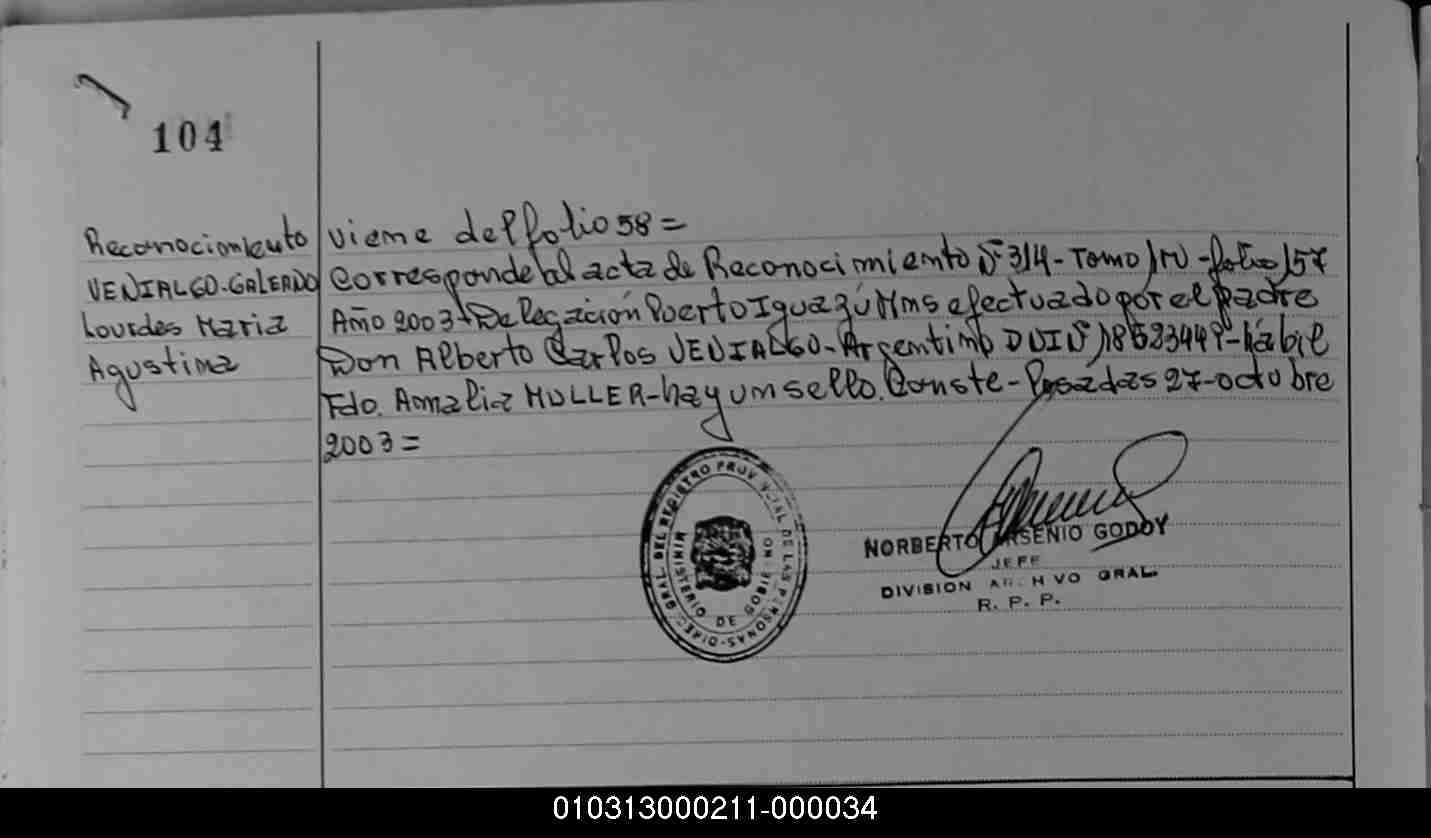 104
Reconocimiento
VENIALGO-GALEANO
Lourdes Maria
Agustina
viene del folio 58=
Corresponde al acta de Reconocimiento Nº 314 - Tomo 1 - folio 157
Año 2003 - Delegación Puerto Iguazú Mns efectuado por el padre
Don Alberto Carlos VENIALGO - Argentino DNI Nº - hábil
Fdo. Amalia MULLER - hay un sello. Conste - Posadas 27 - octubre
2003=
DIREC. GRAL. DEL REGISTRO PROVINCIAL DE LAS PERSONAS
MINISTERIO DE GOBIERNO
NORBERTO ARSENIO GODOY
JEFE
DIVISION ARCHIVO GRAL.
R. P. P.
010313000211-000034